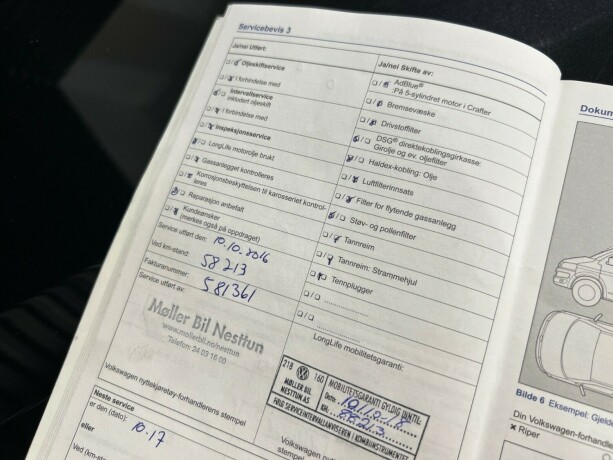 Servicebevis 3
Ja/nei Utført:
Oljeskiftservice
I forbindelse med
Intervallservice
inkludert oljeskift
I forbindelse med
Inspeksjonsservice
LongLife motorolje brukt
Gassanlegget kontrolleres
Korrosjonsbeskyttelsen til karosseriet kontrol-
leres
Reparasjon anbefalt
Kundeønsker
(merkes også på oppdraget)
Service utført den: 10.10.2016
Ved km-stand: 58213
Fakturanummer: 581361
Service utført av:
Møller Bil Nesttun
www.mollerbil.no/nesttun
Telefon: 24 03 16 00
Volkswagen nyttekjøretøy-forhandlerens stempel
Neste service
er den (dato): 10.17
eller
Ved (km-stand)
Ja/nei Skifte av:
AdBlue®
:På 5-sylindret motor i Crafter
Bremsevæske
Drivstoffilter
DSG® direktekoblingsgirkasse:
Girolje og ev. oljefilter
Haldex-kobling: Olje
Luftfilterinnsats
Filter for flytende gassanlegg
Støv- og pollenfilter
Tannreim
Tannreim: Strammehjul
Tennplugger
LongLife mobilitetsgaranti:
218 VW 160
MØLLER BIL
NESTTUN AS
MOBILITETSGARANTI GYLDIG INNTIL:
Dato
KM.
FØLG SERVICEINTERVALLANVISEREN I KOMBIINSTRUMENTET
Volkswagen
stempel
Dokum
Bilde 6 Eksempel: Gjeld
Din Volkswagen-forhandle
× Riper